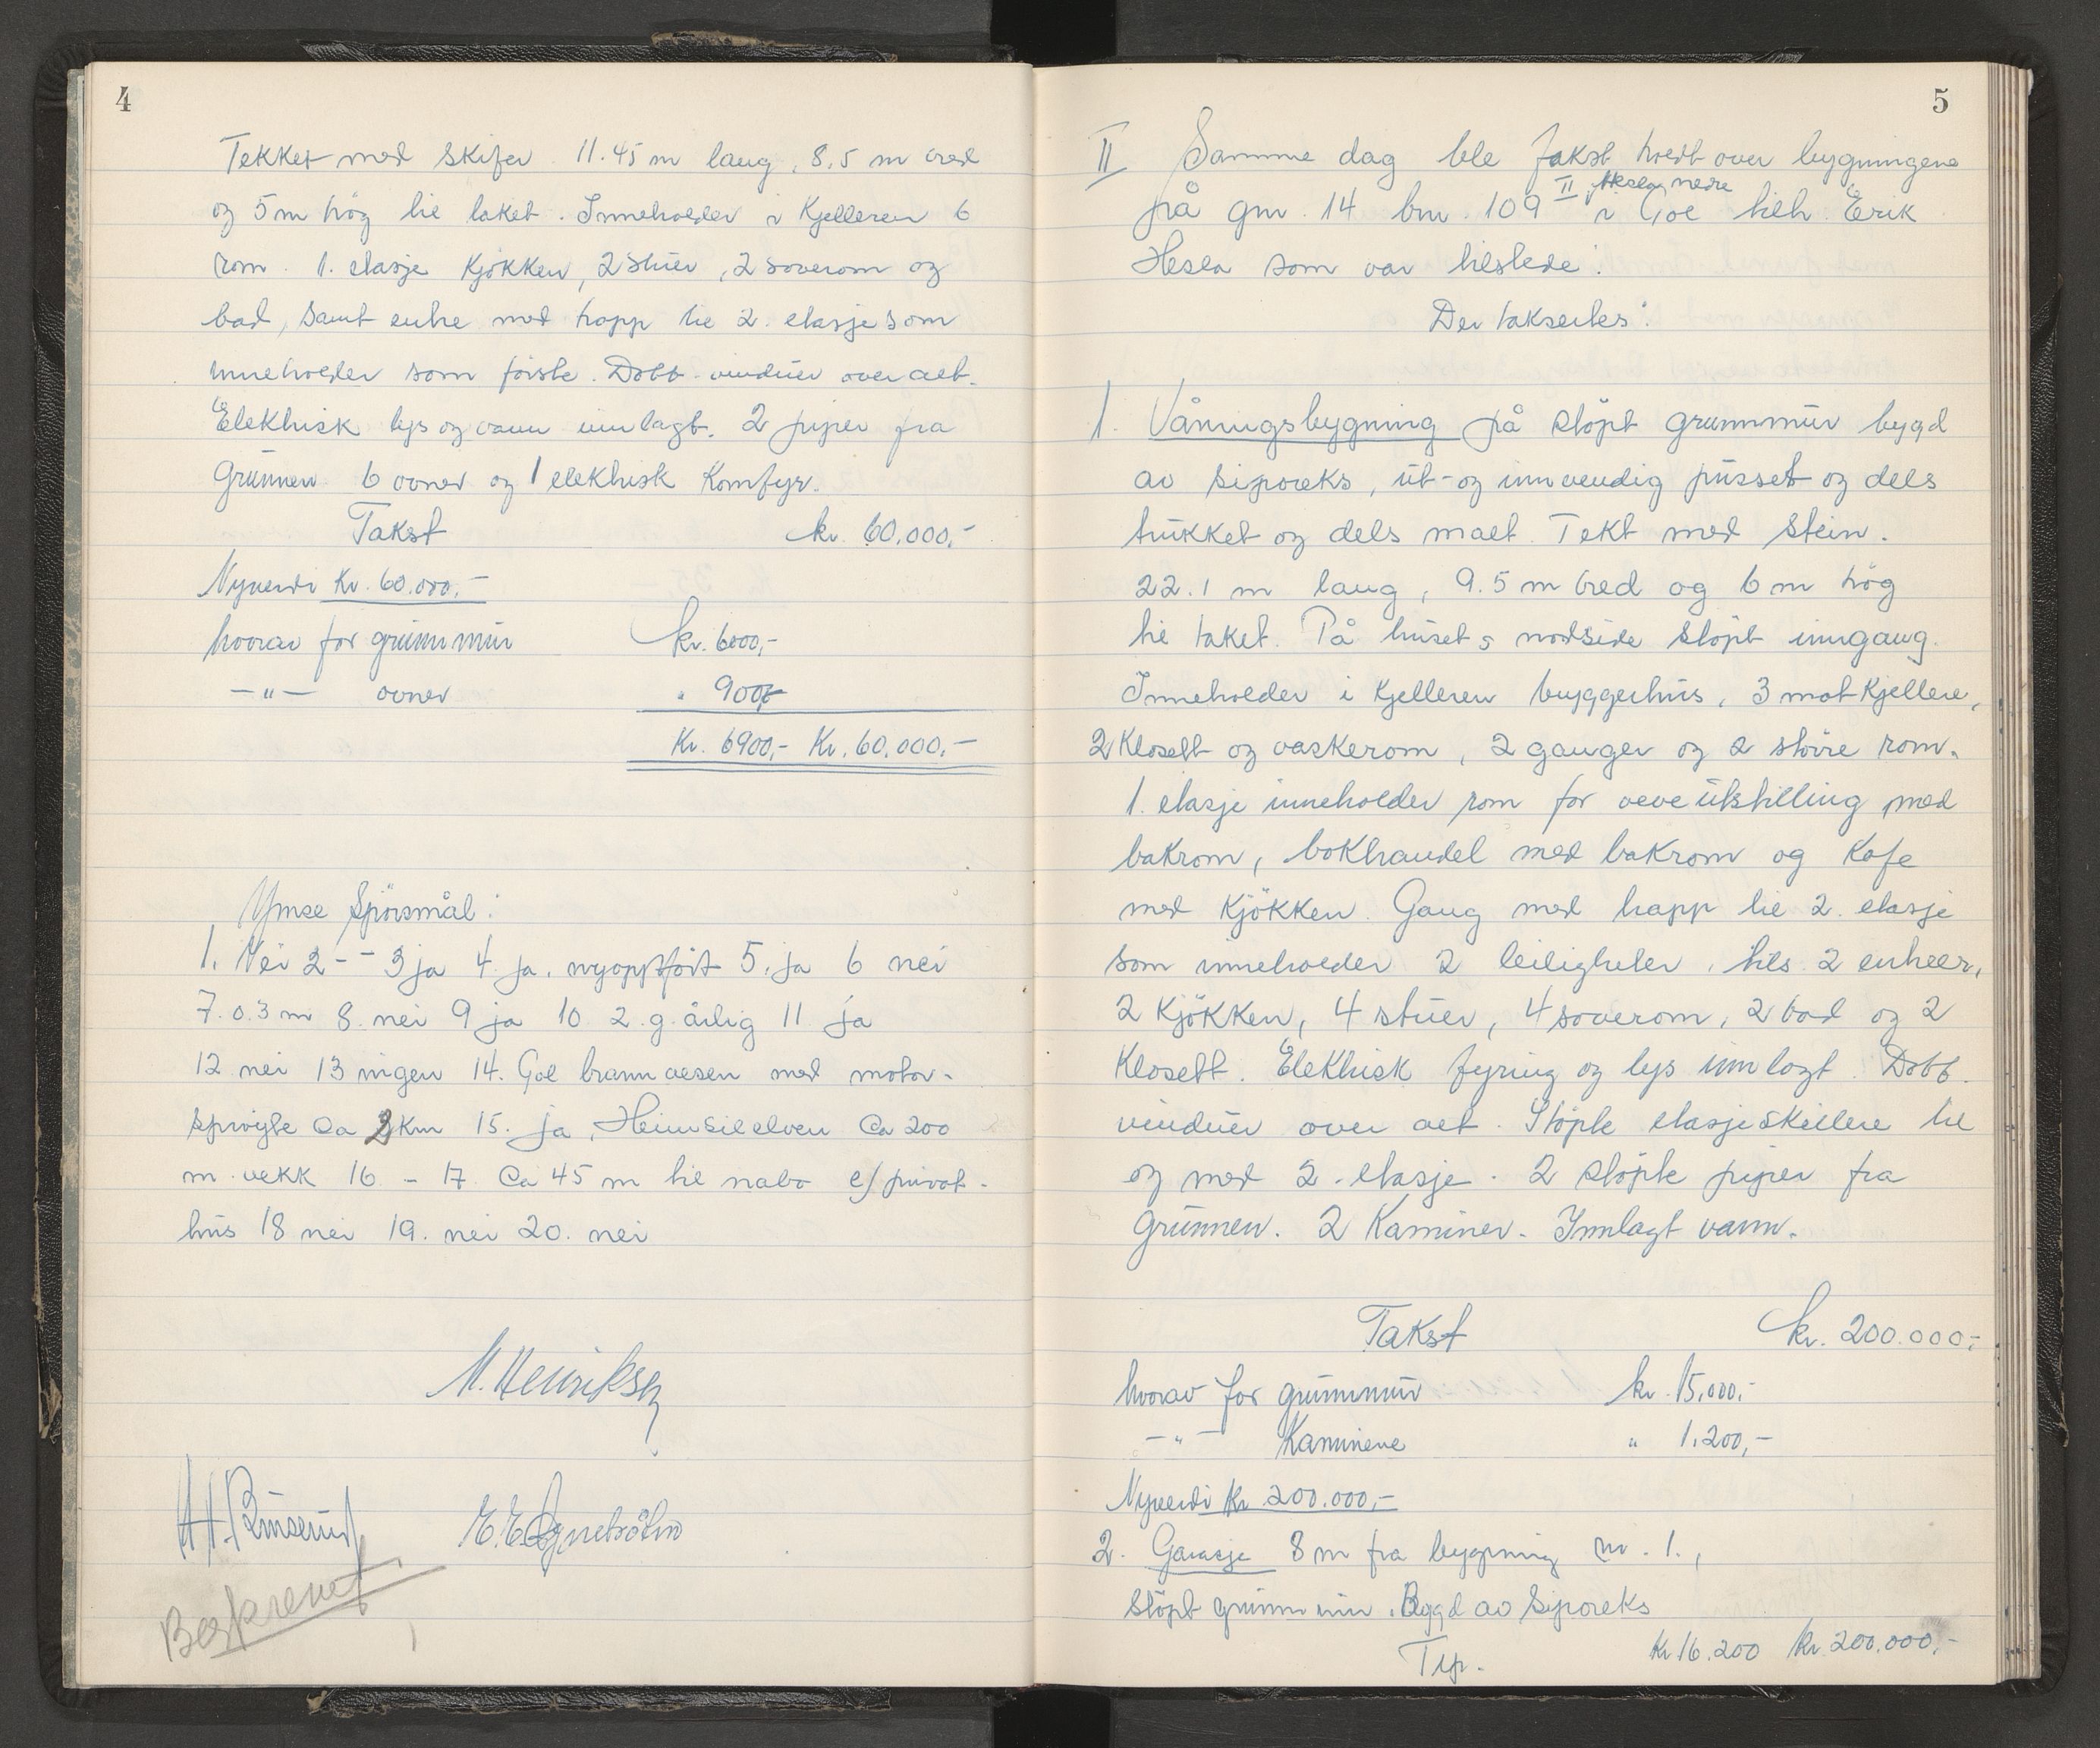 4
Tekket med skifer 11.45 m lang, 8,5 m bred
og 5 m høg til taket. Inneholder i Kjelleren 6
rom. 1. etasje Kjøkken, 2 stuer, 2 soverom og
bad, samt entre med trapp til 2. etasje som
inneholder som første. Dobb. vinduer over alt.
Elektrisk lys og vann innlagt. 2 piper fra
Grunnen 6 ovner og 1 elektrisk Komfyr.
Takst kr. 60.000,-
Nyverdi Kr. 60.000,-
hvorav for grunnmur kr. 6000,-
-"- ovner " 900,-
Kr. 6900,- Kr. 60.000,-
Ymse Spörsmål:
1. Nei 2 - - 3 ja 4. ja. nyoppført 5. ja 6 nei
7. 0.3 m 8. nei 9 ja 10 2. g. årlig 11 ja
12 nei 13 ingen 14. Gol brannvesen med motor-
sprøyte Ca 2 Km 15. ja, Heimsilelven Ca 200
m. vekk 16 - 17. Ca 45 m til nabo e/ privat-
hus 18 nei 19. nei 20. nei
M. Henriksen
Beskrevet
5
II Samme dag ble takst holdt over bygningene
II, Hesla nedre
på gnr. 14 bnr. 109 i Gol tilh. Erik
Hesla som var tilstede.
Der taksertes:
1. Våningsbygning på støpt grunnmur bygd
av siporeks, ut- og innvendig pusset og dels
trukket og dels malt. Tekt med stein.
22.1 m lang, 9.5 m bred og 6 m høg
til taket. På husets nordside støpt inngang.
Inneholder i Kjelleren bryggerhus, 3 matkjellere,
2 Klosett og vaskerom, 2 ganger og 2 større rom.
1. etasje inneholder rom for veveutstilling med
bakrom, bokhandel med bakrom og Kafe
med Kjøkken. Gang med trapp til 2. etasje
som inneholder 2 leiligheter, tils. 2 entreer,
2 Kjøkken, 4 stuer, 4 soverom, 2 bad og 2
Klosett. Elektrisk fyring og lys innlagt. Dobb.
vinduer over alt. Støpte etasjeskillere til
og med 2. etasje. 2 støpte piper fra
Grunnen. 2 Kaminer. Innlagt vann.
Takst kr. 200.000,-
hvorav for grunnmur kr. 15,000,-
-"- Kaminene " 1.200,-
Nyverdi Kr 200.000,-
2. Garasje 8 m fra bygning nr. 1.,
støpt grunnmur. Bygd av Siporeks
Trp. Kr 16.200 Kr. 200.000,-